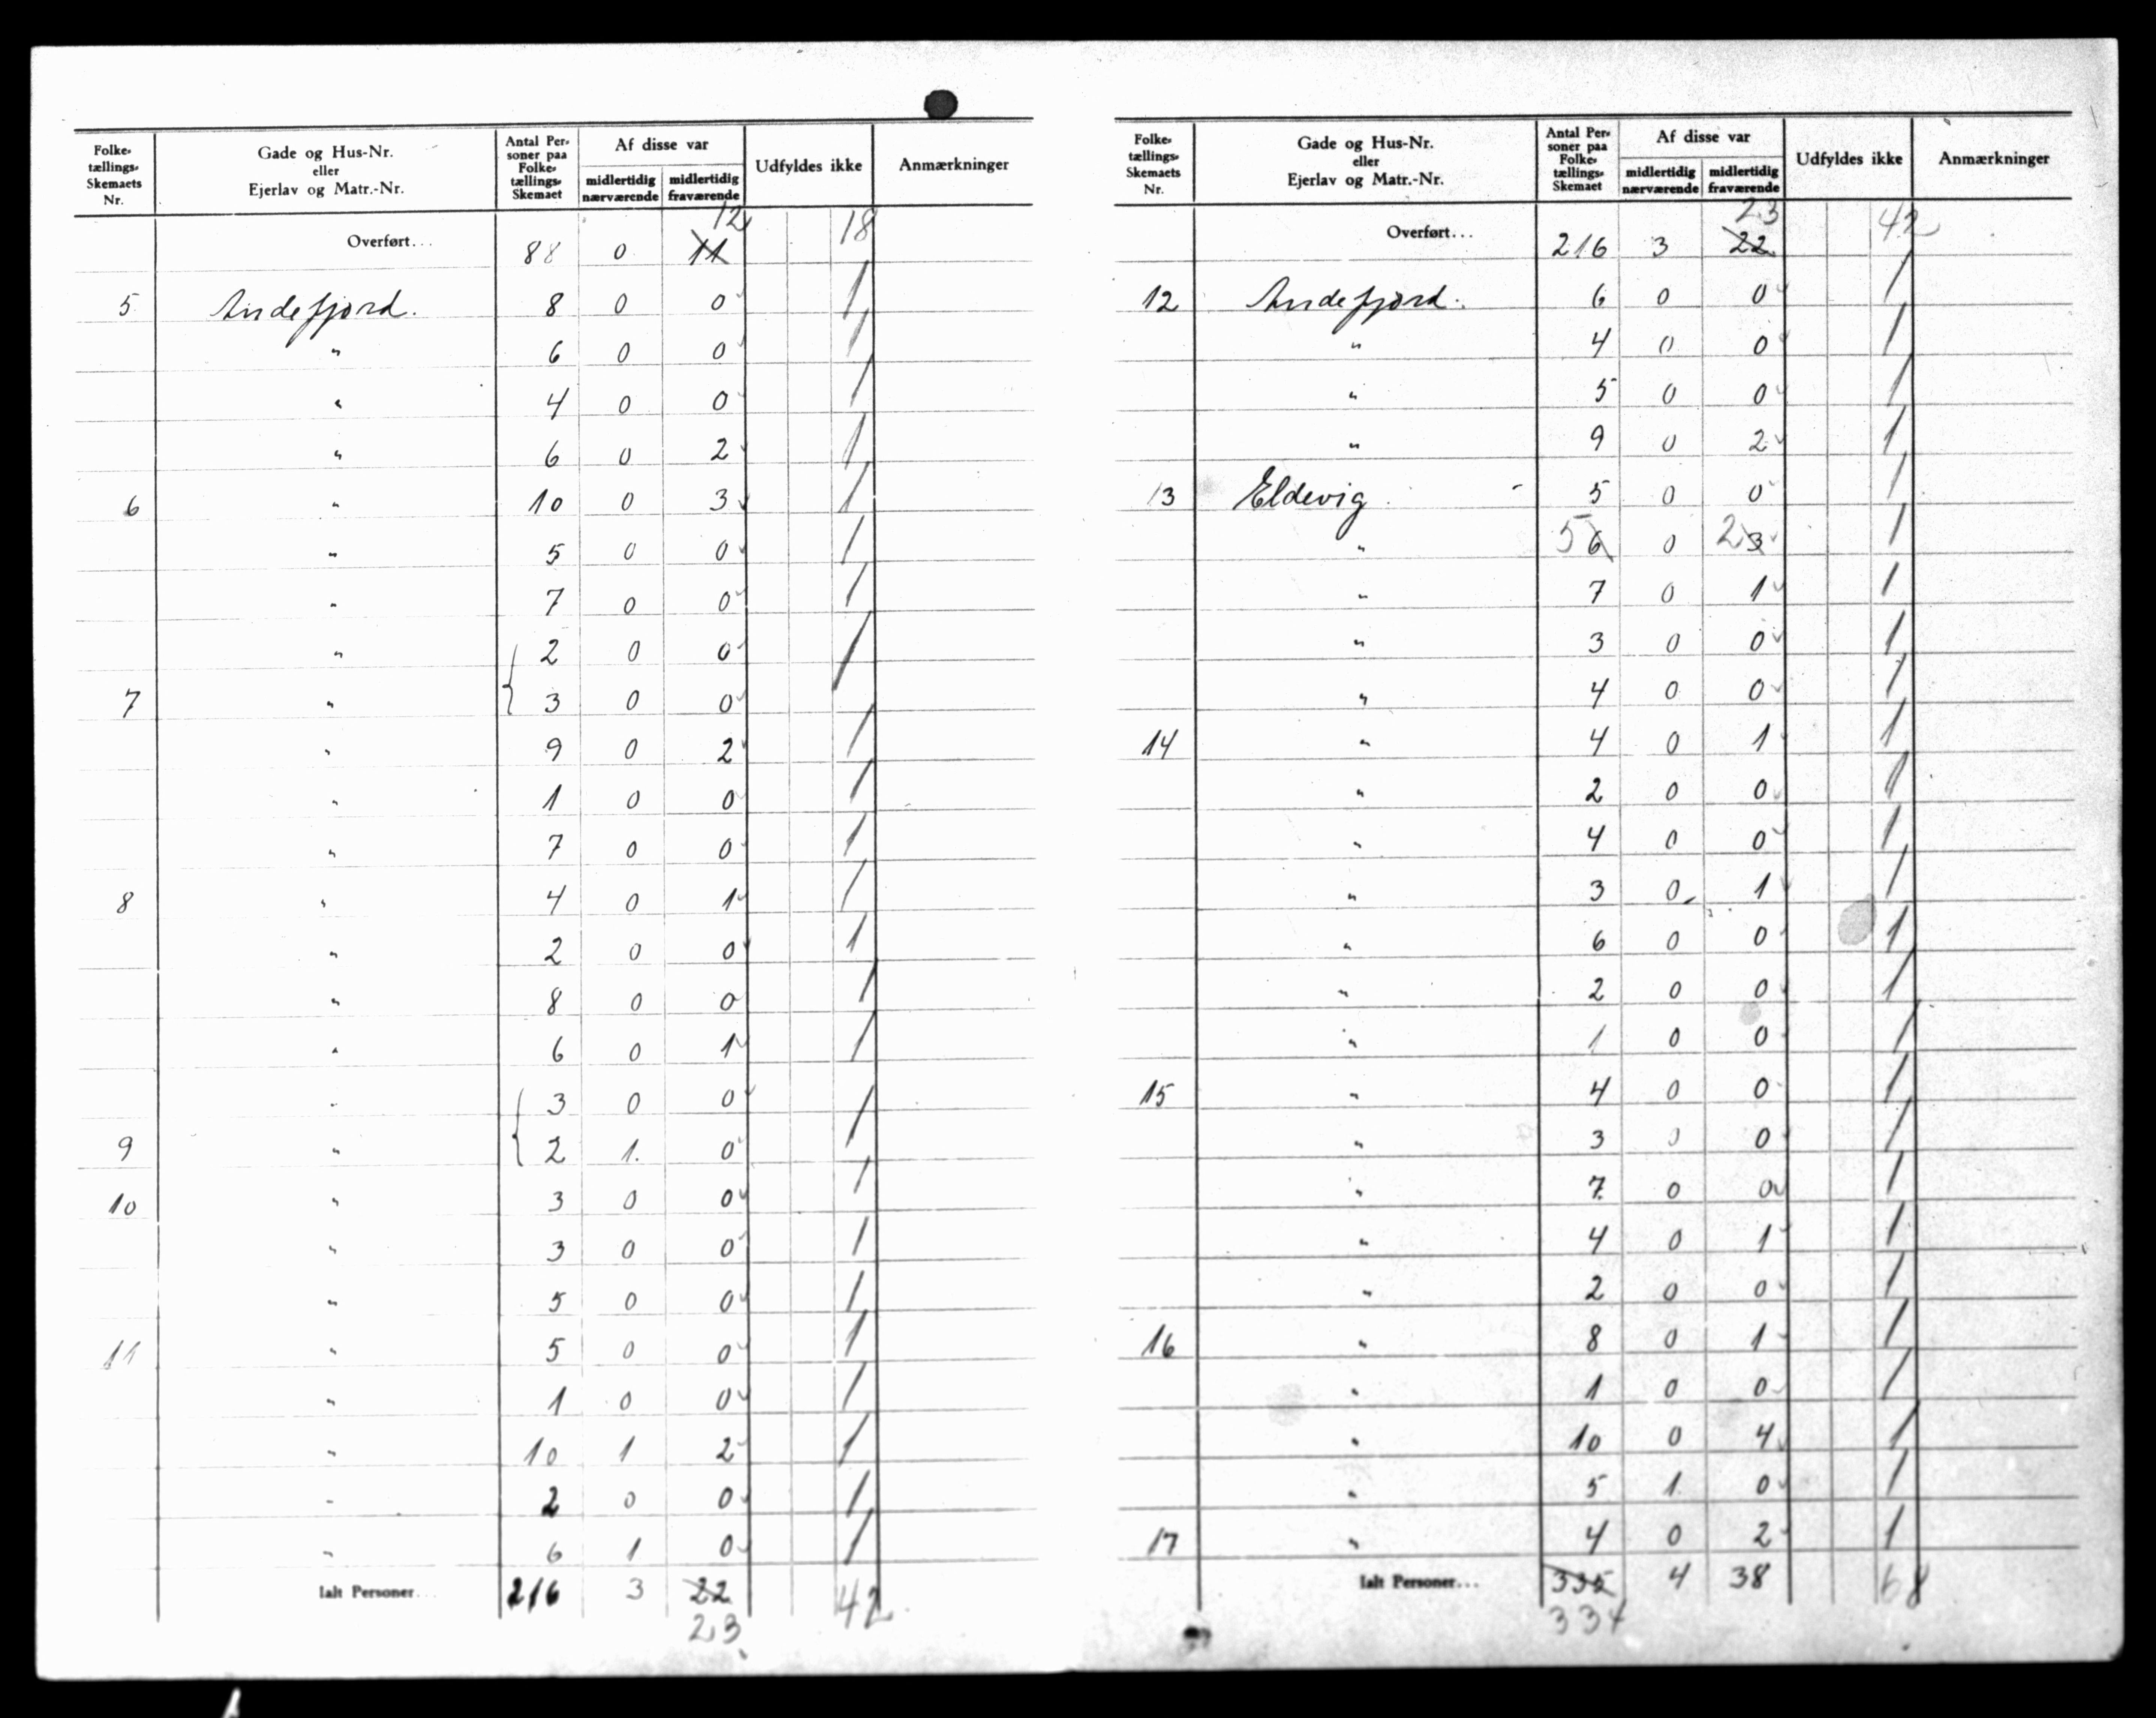 Folke- tællings- Skemaets Nr. | Gade og Hus-Nr. eller Ejerlav og Matr.-Nr. | Antal Per- soner paa Folke- tællings- Skemaet | Af disse var midlertidig nærværende | midlertidig fraværende | Udfyldes ikke | Anmærkninger
12
Overført... 88 0 11 18
5 Andefjord. 8 0 0 1
" 6 0 0 1
" 4 0 0 1
" 6 0 2 1
6 " 10 0 3 1
" 5 0 0 1
" 7 0 0 1
" { 2 0 0 1
7 " 3 0 0
" 9 0 2 1
" 1 0 0 1
" 7 0 0 1
8 " 4 0 1 1
" 2 0 0 1
" 8 0 0 1
" 6 0 1 1
" { 3 0 0 1
9 " 2 1. 0
10 " 3 0 0 1
" 3 0 0 1
" 5 0 0 1
11 " 5 0 0 1
" 1 0 0 1
" 10 1 2 1
" 2 0 0 1
" 6 1 0 1
Ialt Personer... 216 3 22 42
23
Folke- tællings- Skemaets Nr. | Gade og Hus-Nr. eller Ejerlav og Matr.-Nr. | Antal Per- soner paa Folke- tællings- Skemaet | Af disse var midlertidig nærværende | midlertidig fraværende | Udfyldes ikke | Anmærkninger
23
Overført... 216 3 22 42
12 Andefjord. 6 0 0 1
" 4 0 0 1
" 5 0 0 1
" 9 0 2 1
13 Eldevig 5 0 0 1
" 5 6 0 2 3 1
" 7 0 1 1
" 3 0 0 1
" 4 0 0 1
14 " 4 0 1 1
" 2 0 0 1
" 4 0 0 1
" 3 0 1 1
" 6 0 0 1
" 2 0 0 1
" 1 0 0 1
15 " 4 0 0 1
" 3 0 0 1
" 7. 0 0 1
" 4 0 1 1
" 2 0 0 1
16 " 8 0 1 1
" 1 0 0 1
" 10 0 4 1
" 5 1. 0 1
17 " 4 0 2 1
Ialt Personer... 335 4 38 68
334